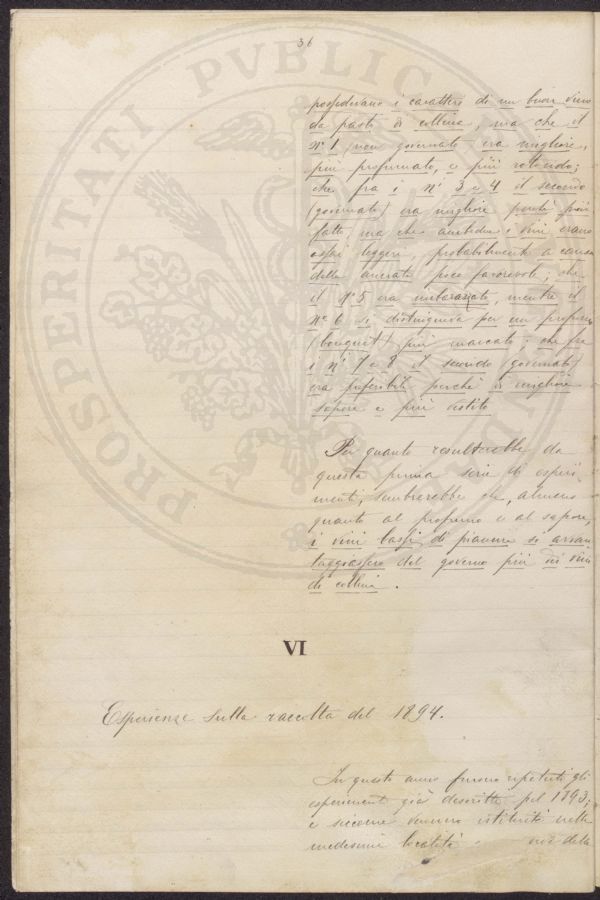 36
possedevano i caratteri di un buon vino
da pasto di collina, ma che il
n° 1 (non governato) era migliore,
più profumato, e più rotondo;
che fra i n¹ 3 e 4 il secondo
(governato) era migliore perché più
fatto, ma che ambedue i vini erano
assai leggeri, probabilmente a causa
della annata poco favorevole; che
il N° 5 era imbarazzato, mentre il
n° 6 si distingueva per un profumo
(bouquet) più marcato; che fra
i n¹ 7 e 8 il secondo (governato)
era preferibile perchè di migliore
sapore e più vestito
Per quanto resulterebbe da
questa prima serie di esperi
menti, sembrerebbe che, almeno
quanto al profumo e al sapore,
i vini bassi di pianura si avvan
taggiassero del governo più dei vini
di collina.
VI
Esperienze sulla raccolta del 1894.
In questo anno furono ripetuti gli
esperimenti già descritti pel 1893;
e siccome vennero istituiti nelle
medesime località della
PROSPERITATI PVBLICAE